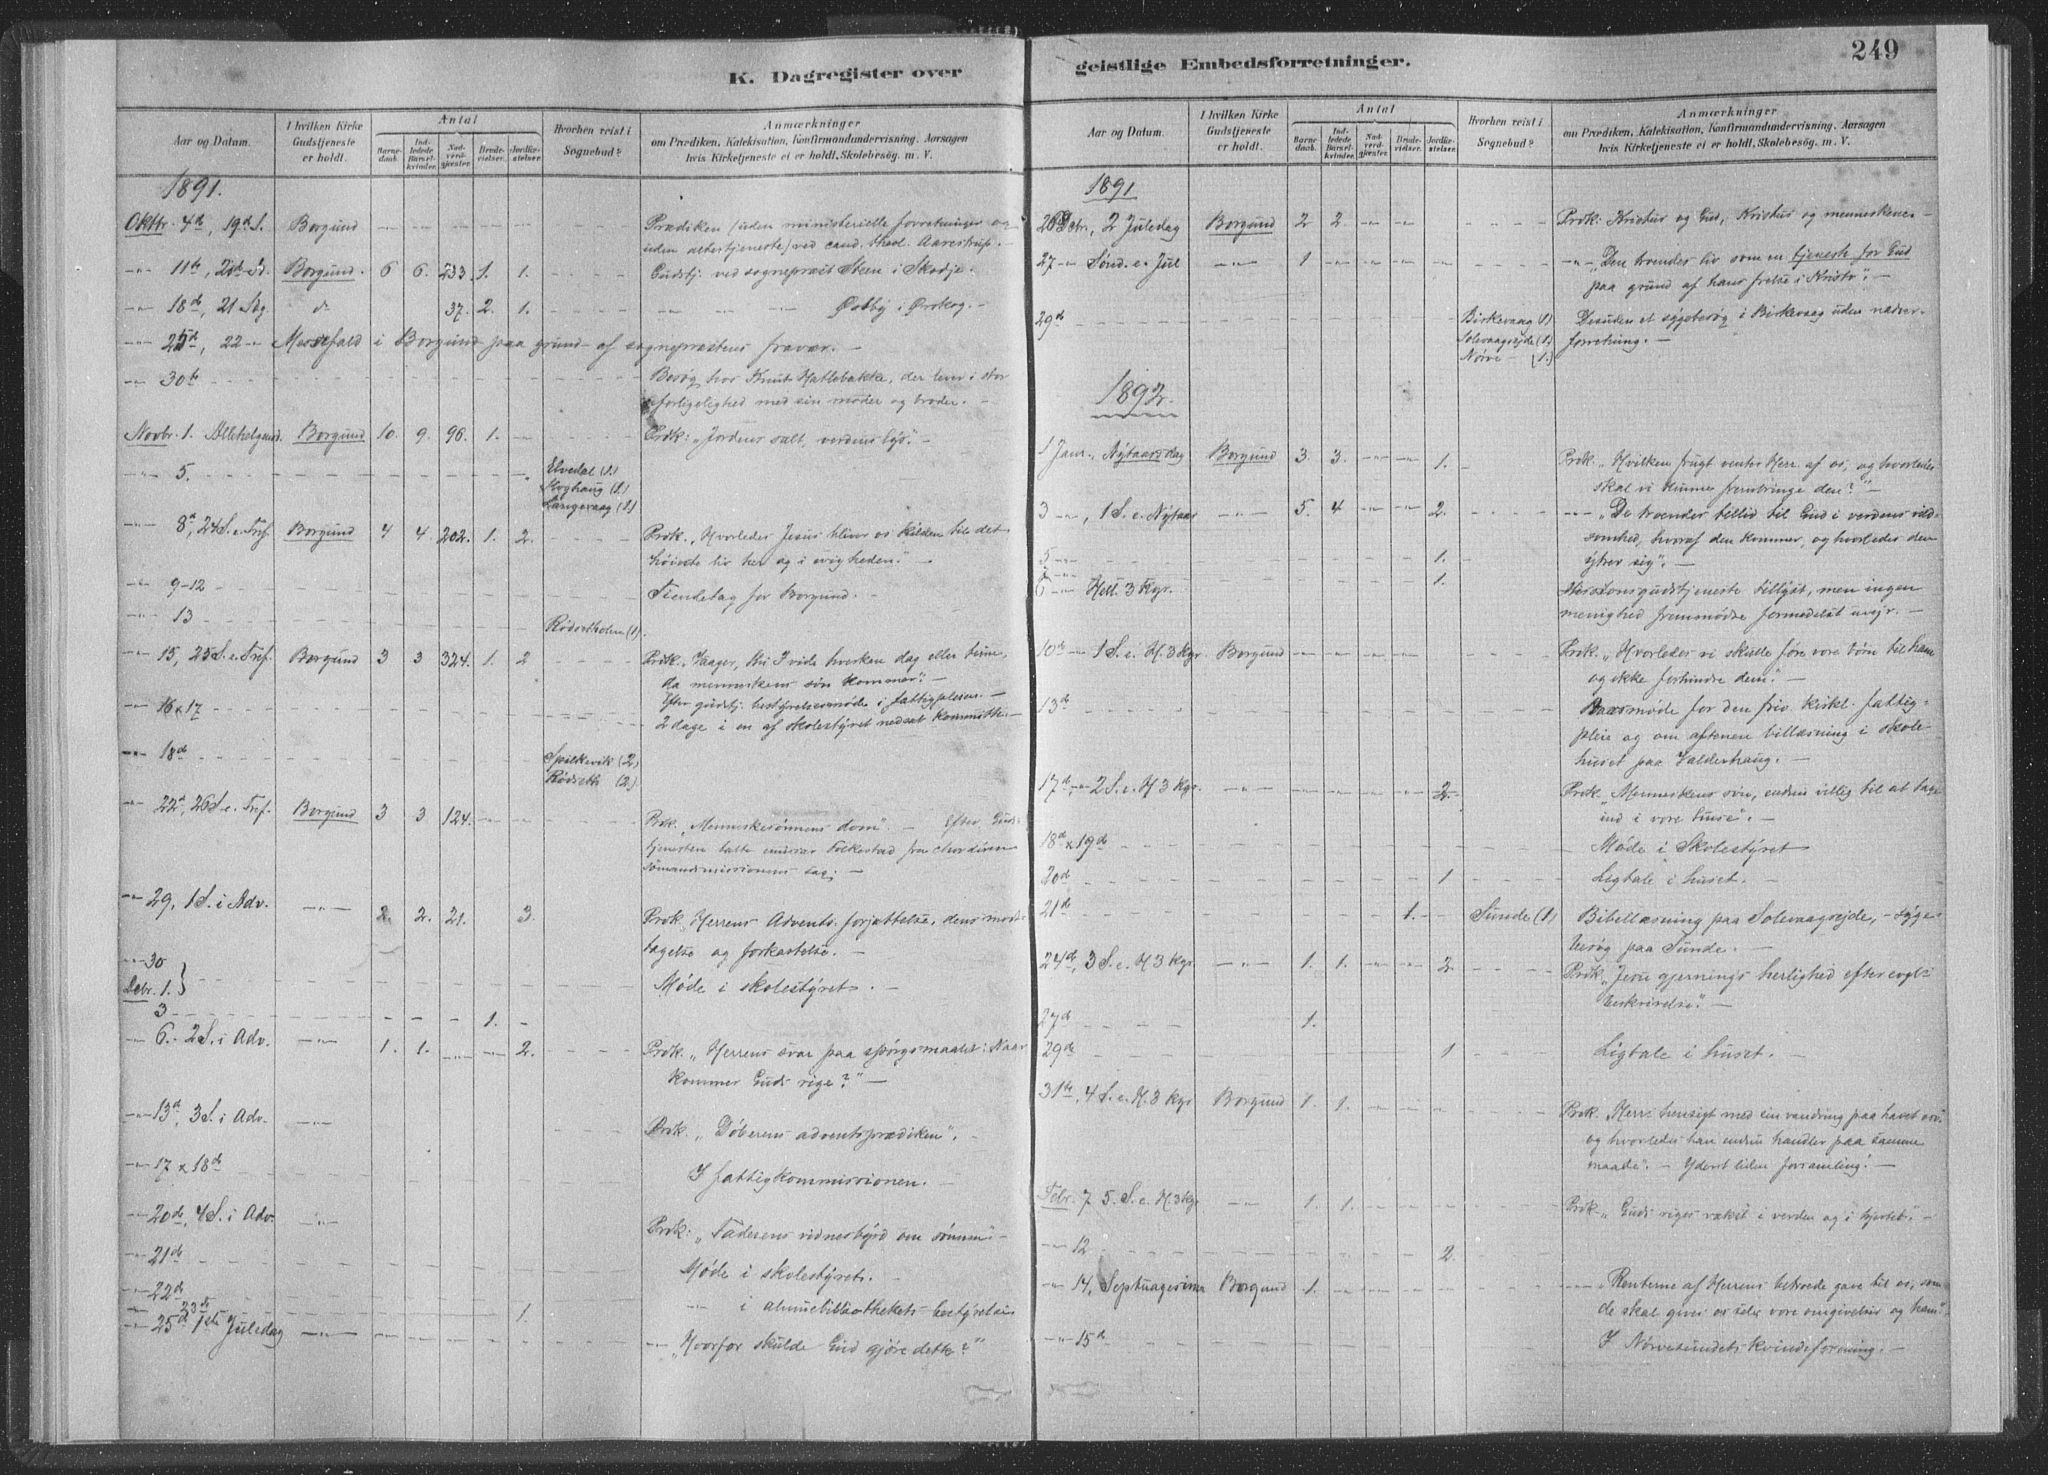 K. Dagregister over
Aar og Datum.
I hvilken Kirke Gudstjeneste er holdt.
Antal
Barnedaab.
Indledede Barselkvinder.
Nadverdgjæster.
Brudevielser.
Jordkastelser.
Hvorhen reist i Sognebud?
Anmærkninger
om Prædiken, Katekisation, Konfirmandundervisning, Aarsagen
hvis Kirketjeneste ei er holdt, Skolebesøg. m. V.
1891.
Oktbr. 4de, 19de S. Borgund Prædiken (uden ministerielle forretninger og
uden altertjeneste) ved cand. theol. Aarestrup. —
-"- 11te, 20de S. Borgund. 6 6. 233. 1. 1. Gudstj. ved sogneprest Steen i Skodje. —
-"- 18de, 21 Sdg. do 37. 2. 1. -"- -"- Østby i Ørskog. —
-"- 25de, 22 -"- Messefald i Borgund paa grund af sogneprestens fravær. —
-"- 30te Besøg hos Knut Hatlebakke, der lever i stor
uforligelighed med sin moder og broder. —
Novbr. 1. Allehelgensd. Borgund 10. 9. 96. 1. Prdk: "Jordens salt, verdens lys". —
-"- 5. Elvedal (1.)
Moghaug (1.)
Langevaag (1.)
-"- 8de, 24 S. e. Tref. Borgund 4 4. 202. 1. 2. Prdk. "Hvorledes Jesus bliver os kilden til det
høieste liv her og i evigheden." —
-"- 9-12 Tiendetag for Borgund. —
-"- 13 Rødsetholm (1).
-"- 15, 25 S. e. Tref. Borgund 3 3 324. 1. 2 Prdk. "Vaager, thi I vide hverken dag eller time,
da menneskens søn kommer". —
Efter gudstj. bestyrelsesmøde i fattigpleien. —
-"- 16 & 17 2 dage i en af skolestyret nedsat kommitte —
-"- 18de Spilkevik (2)
Rødseth (2.)
-"- 22de, 26 S. e. Tref. Borgund 3 3 124. Prdk. "Menneskesønnens dom". — Efter Guds-
tjenesten talte emissær Folkestad fra
sømandsmissionens sag. —
-"- 29, 1 S. i Adv. -"- 2. 2. 21. 3. Prdk. "Herrens Advents forjættelse, dens mod-
tagelse og forkastelse. —
-"- 30
Debr. 1. Møde i skolestyret. —
3 1.
-"- 6. - 2 S. i Adv. -"- 1. 1. 2. Prdk. "Herrens svar paa spørgsmaalet: Naar
kommer Guds rige?" —
-"- 13de, 3 S. i Adv. -"- Prdk. "Døberens adventsprædiken". —
-"- 17 & 18de I fattigkommissionen. —
-"- 20de, 4 S. i Adv. -"- Prdk: "Faderens vidnesbyrd om sønnen" —
-"- 21de Møde i skolestyret. —
-"- 22de -"- i almuebibliothekets bestyrelse
-"- 23de 1.
-"- 25de 1ste Juledag -"- -"- "Hvorfor skulde Gud gjøre dette?"
geistlige Embedsforretninger.
249
Aar og Datum.
I hvilken Kirke Gudstjeneste er holdt.
Antal
Barnedaab.
Indledede Barselkvinder.
Nadverdgjæster.
Brudevielser.
Jordkastelser.
Hvorhen reist i Sognebud?
Anmærkninger
om Prædiken, Katekisation, Konfirmandundervisning, Aarsagen
hvis Kirketjeneste ei er holdt, Skolebesøg. m. V.
1891
26 Debr., 2 Juledag Borgund 2 2. Prdk: Kristus og Gud, Kristus og menneskene —
27 -"- Sønd. e. Jul -"- 1 -"- "Den troendes liv som en tjeneste for Gud
paa grund af hans frelse i Kristo". —
29de Birkevaag (1) Desuden et sygebesøg i Birkevaag uden nadver-
Solevaagseide (1.) forretning. —
Nørve (1.)
1892.
1 Janr., Nytaarsdag Borgund 3. 3. 1. Prdk. "Hvilken frugt venter Herr. af os, og hvorledes
skal vi kunne frembringe den?" —
3 -"-, 1 S. e. Nytaar -"- 5. 4 2. -"- "De troendes tillid til Gud i verdens vold-
somhed, hvoraf den kommer, og hvorledes den
5 -"- 1. ytrer sig". —
6 -"- Hell. 3 Kgr. 1. Missionsgudstjeneste tillyst, men ingen
menighed fremmødte formedelst uveir. —
10de -"- 1 S. e. H. 3 Kgr. Borgund Prdk. "Hvorledes vi skulle føre vore børn til ham
og ikke forhindre dem". —
13de Aarsmøde for den friv. kirkl. fattig-
pleie og om aftenen bibellæsning i skole-
huset paa Valderhaug. —
17de, -"- 2 S. e. H 3 Kgr. -"- 2. Prdk. "Menneskens søn, endnu villig til at tage
ind i vore huse". —
18de & 19de Møde i Skolestyret
20de 1 Ligtale i huset. —
21de 1. Sunde (1) Bibellæsning paa Solevaagseide, - syge-
besøg paa Sunde. —
24de, 3 S. e. H 3 Kgr. -"- 1. 1. 2. Prdk. "Jesu gjernings herlighed efter evgl:
beskrivelse". —
27de 1.
29de 1 Ligtale i huset. —
31te, 4 S. e. H. 3 Kgr. Borgund 1. 1. Prdk. Herrens hensigt med sin vandring paa havet
og hvorledes han endnu handler paa samme
maade". — Yderst liden forsamling. —
Febr. 7, 5. S. e. H. 3 Kgr. -"- 1. 1. Prdk. "Guds riges vækst i verden og i hjertet". —
-"- 12 2.
-"- 14, Septuagesima Borgund 1. -"- "Renterne af Herrens betroede gave til os, som
de skal gives os selv, vore omgivelser og ham".
-"- 15de I Nørvesundets kvindeforening. —